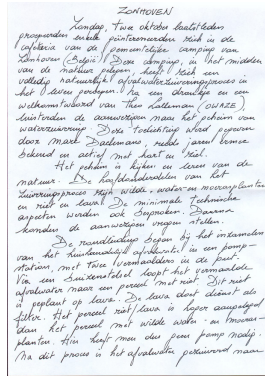 ZONHOVEN
Zondag, twee oktober laatstleden
groepeerden enkele geïnteresseerden zich in de
cafetaria van de gemeentelijke camping van
Zonhoven (België). Deze camping, in het midden
van de natuur gelegen, heeft zich een
volledig natuurlijk afvalwaterzuiveringsproces in
het leven geroepen. Na een drankje en een
welkomstwoord van Theo Lalleman (OWAZE)
luisterden de aanwezigen naar het geheim van
waterzuivering. Deze toelichting werd gegeven
door Marc Daelemans, reeds jaren ermee
bekend en actief met hart en ziel.
Het geheim is kijken en leren van de
natuur. De hoofdonderdelen van het
zuiveringsproces zijn wilde water- en moerasplanten
en riet en lava. De minimale technische
aspecten werden ook besproken. Daarna
konden de aanwezigen vragen stellen.
De rondleiding begon bij het inzamelen
van het huishoudelijk afvalwater in een pomp-
station, met twee vermalers in de put.
Via een buizenstelsel loopt het vermaalde
afvalwater naar een perceel met riet. Dit riet
is geplant op lava. De lava doet dienst als
filter. Het perceel riet/lava is hoger aangelegd
dan het perceel met wilde water- en moeras-
planten. Hier heeft men dus geen pomp nodig.
Na dit proces is het afvalwater gezuiverd naar